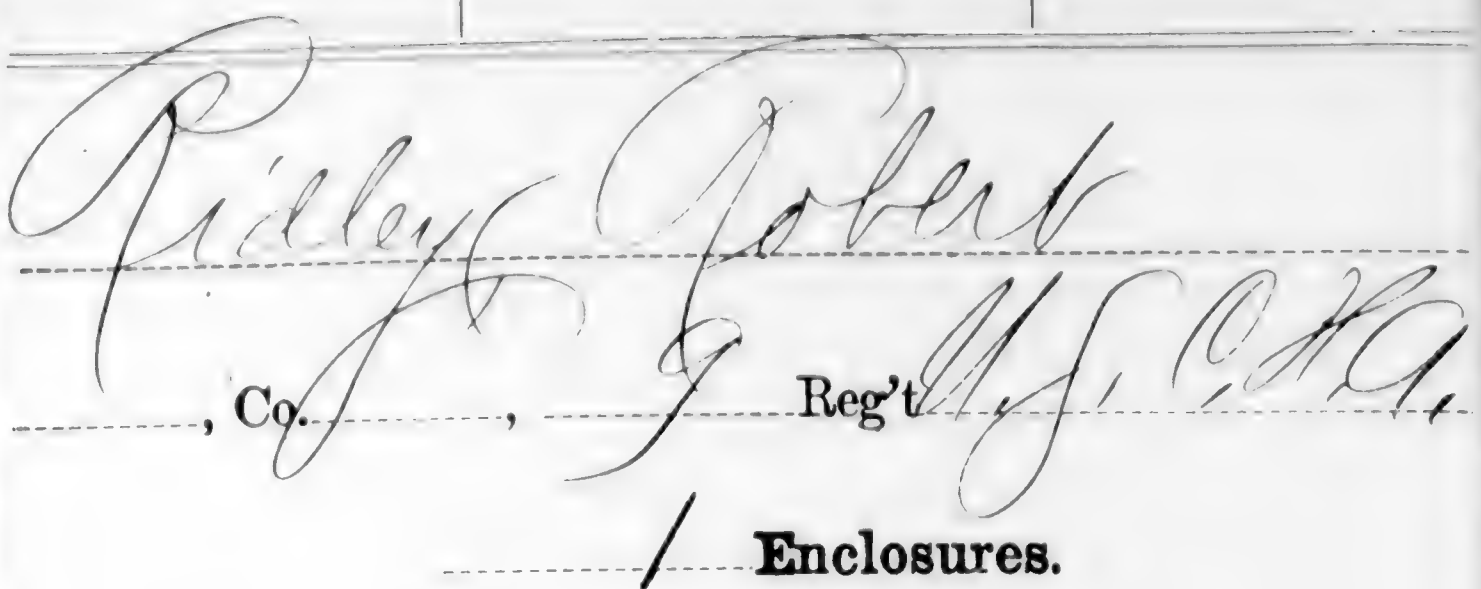 Ridley, Robert
, Co. , 9 Reg't U.S. C.H.A.
1 Enclosures.